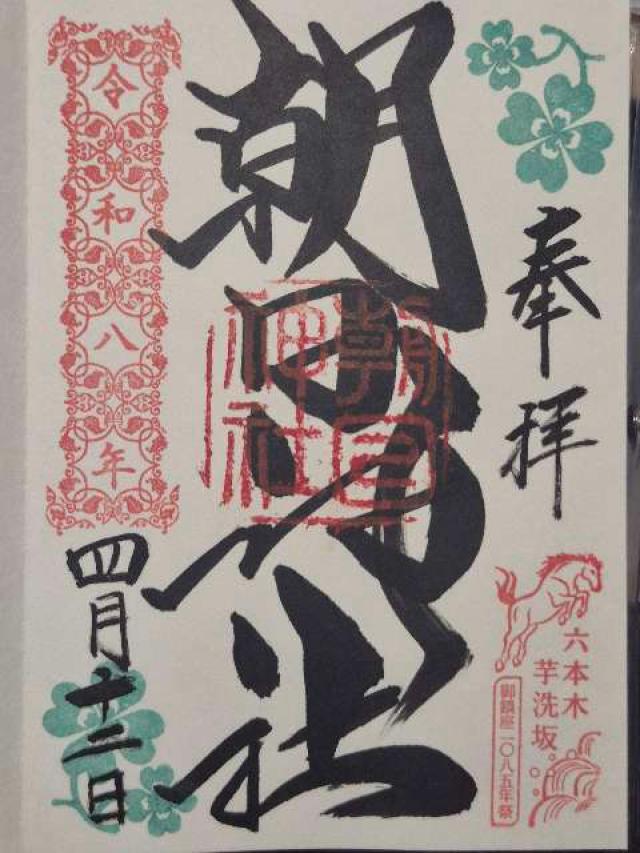 奉拝
六本木
芋洗坂
御鎮座一〇八五年祭
朝日神社
朝日神社
令和八年
四月十二日